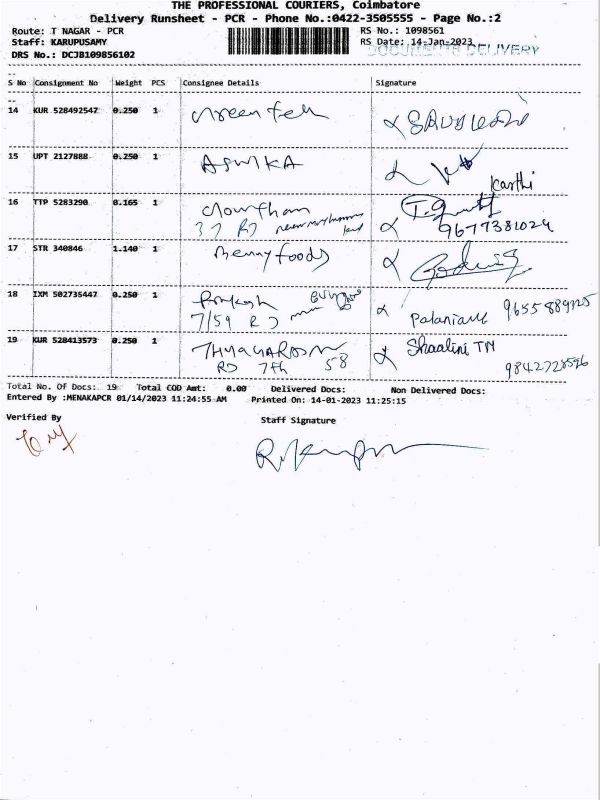 THE PROFESSIONAL COURIERS, Coimbatore
Delivery Runsheet - PCR - Phone No.:0422-3505555 - Page No.:2
Route: T NAGAR - PCR
RS No.: 1098561
Staff: KARUPUSAMY
RS Date: 14-Jan-2023
DOCUMENTS DELIVERY
DRS No.: DCJB109856102
S No Consignment No Weight PCS Consignee Details Signature
14 KUR 528492547 0.250 1
15 UPT 2127888 0.250 1 ASWIKA
Karthi
16 TTP 5283290 0.165 1 Gowtham
37 RD
9677381024
17 STR 340846 1.140 1 Benny foods
18 IXM 502735447 0.250 1 Prakash
7/59 RD
9655889325
19 KUR 528413573 0.250 1 Shaalini TN
RD 7th 58
9842728596
Total No. Of Docs: 19 Total COD Amt: 0.00 Delivered Docs: Non Delivered Docs:
Entered By :MENAKAPCR 01/14/2023 11:24:55 AM Printed On: 14-01-2023 11:25:15
Verified By
Staff Signature